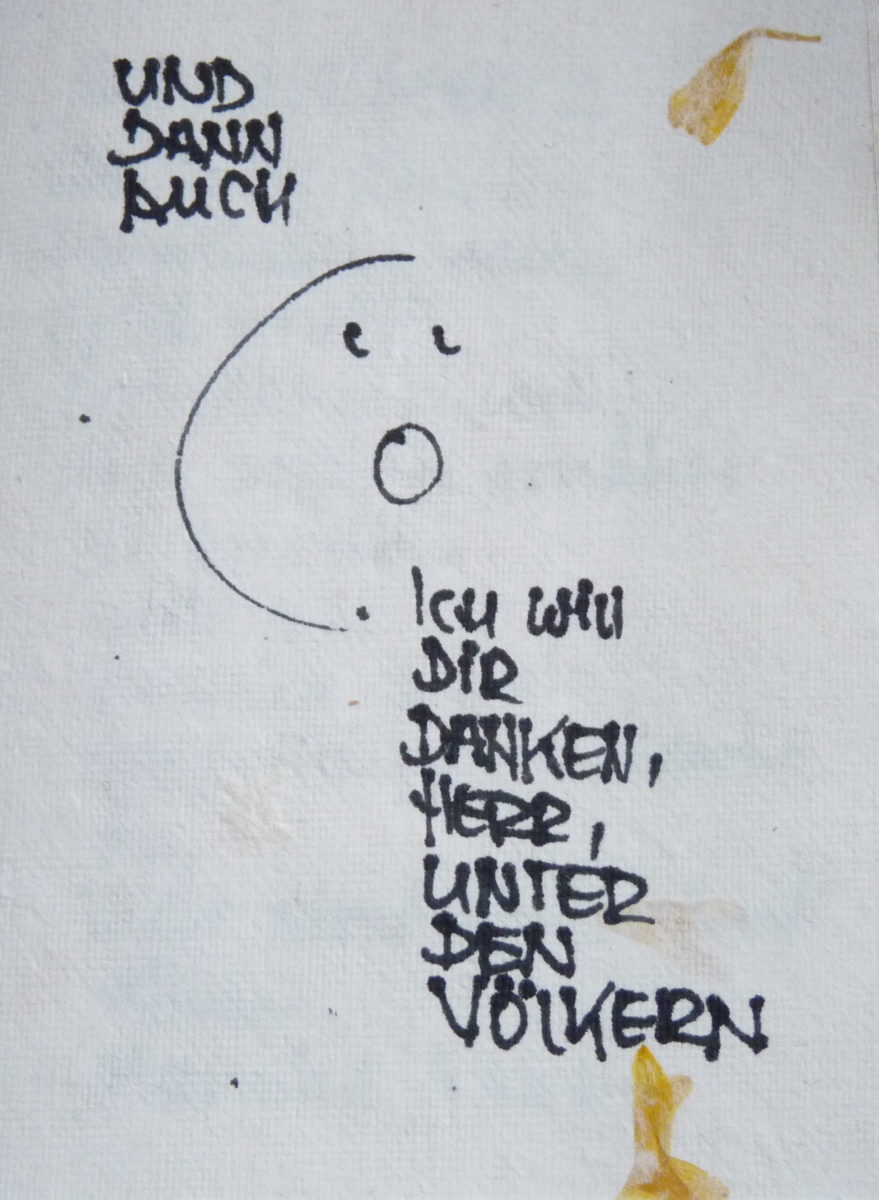 UND
DANN
AUCH
ICH WILL
DIR
DANKEN,
HERR,
UNTER
DEN
VÖLKERN